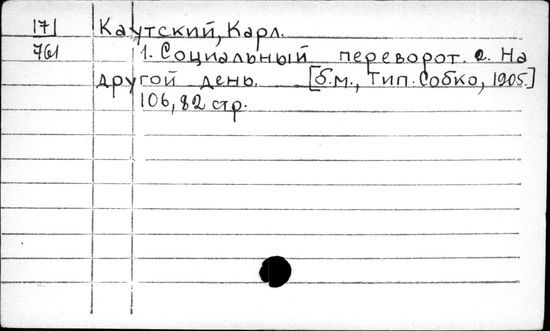 171 Каутский, Карл.
761 1. Социальный переворот. 2. На
другой день. [б.м., Тип. Собко, 1905.]
106, 82 стр.